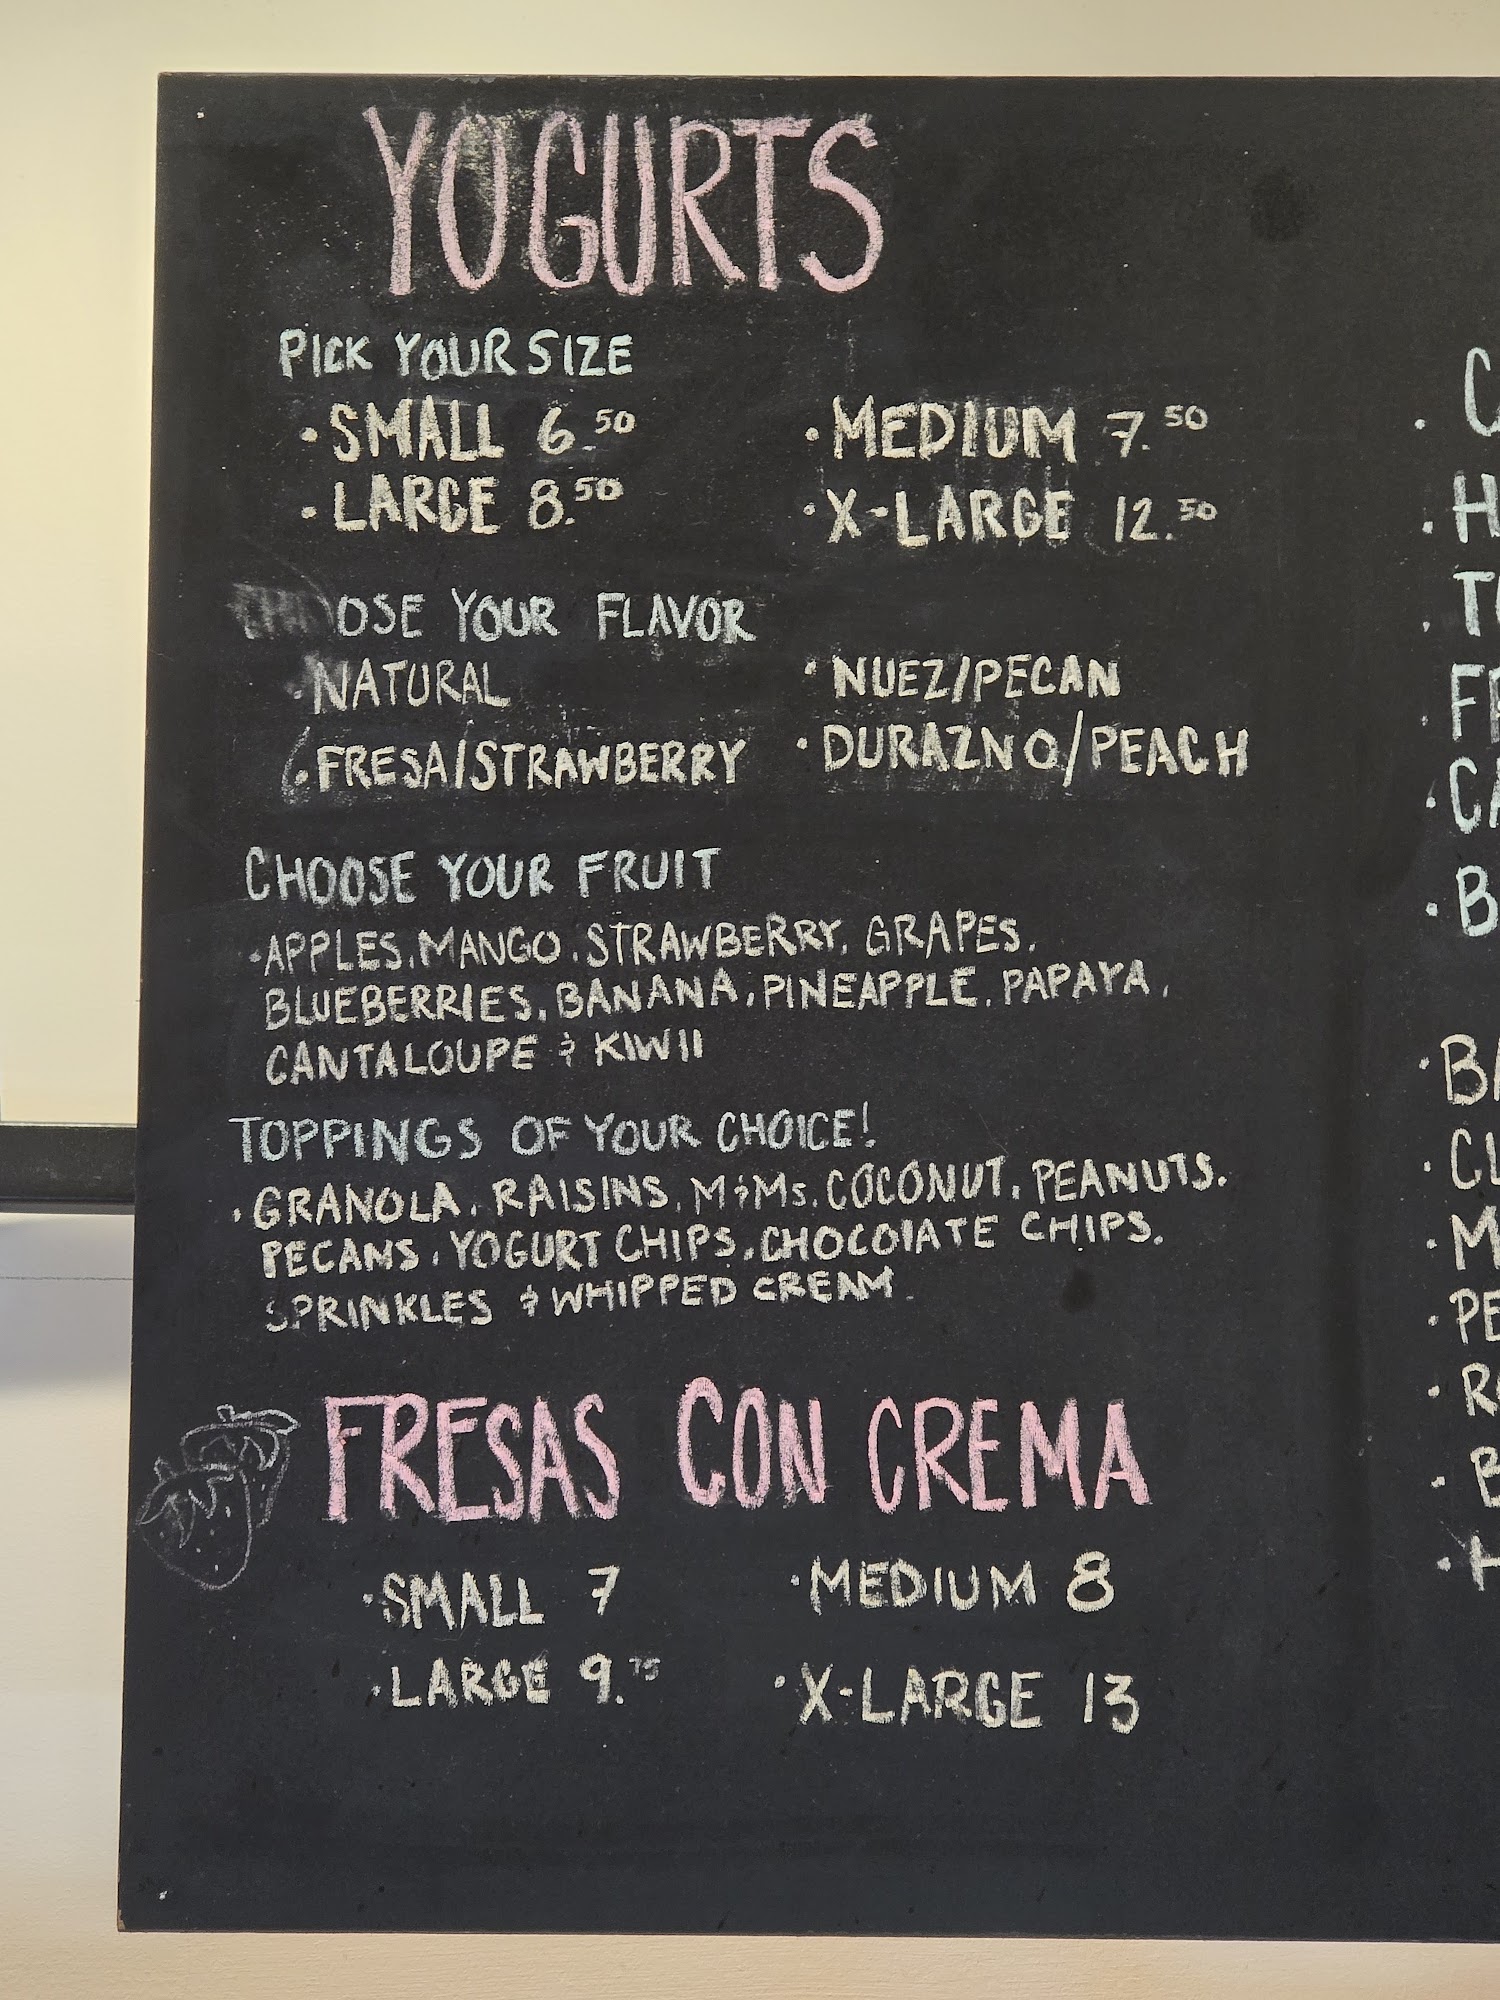 YOGURTS
PICK YOUR SIZE
· SMALL 6.50
· MEDIUM 7.50
· LARGE 8.50
· X-LARGE 12.50
CHOOSE YOUR FLAVOR
· NATURAL
· NUEZ/PECAN
· FRESA/STRAWBERRY
· DURAZNO/PEACH
CHOOSE YOUR FRUIT
· APPLES, MANGO, STRAWBERRY, GRAPES,
BLUEBERRIES, BANANA, PINEAPPLE, PAPAYA,
CANTALOUPE & KIWII
TOPPINGS OF YOUR CHOICE!
· GRANOLA, RAISINS, M&Ms, COCONUT, PEANUTS,
PECANS, YOGURT CHIPS, CHOCOlATE CHIPS,
SPRINKLES & WHIPPED CREAM
FRESAS CON CREMA
· SMALL 7
· MEDIUM 8
· LARGE 9.75
· X-LARGE 13